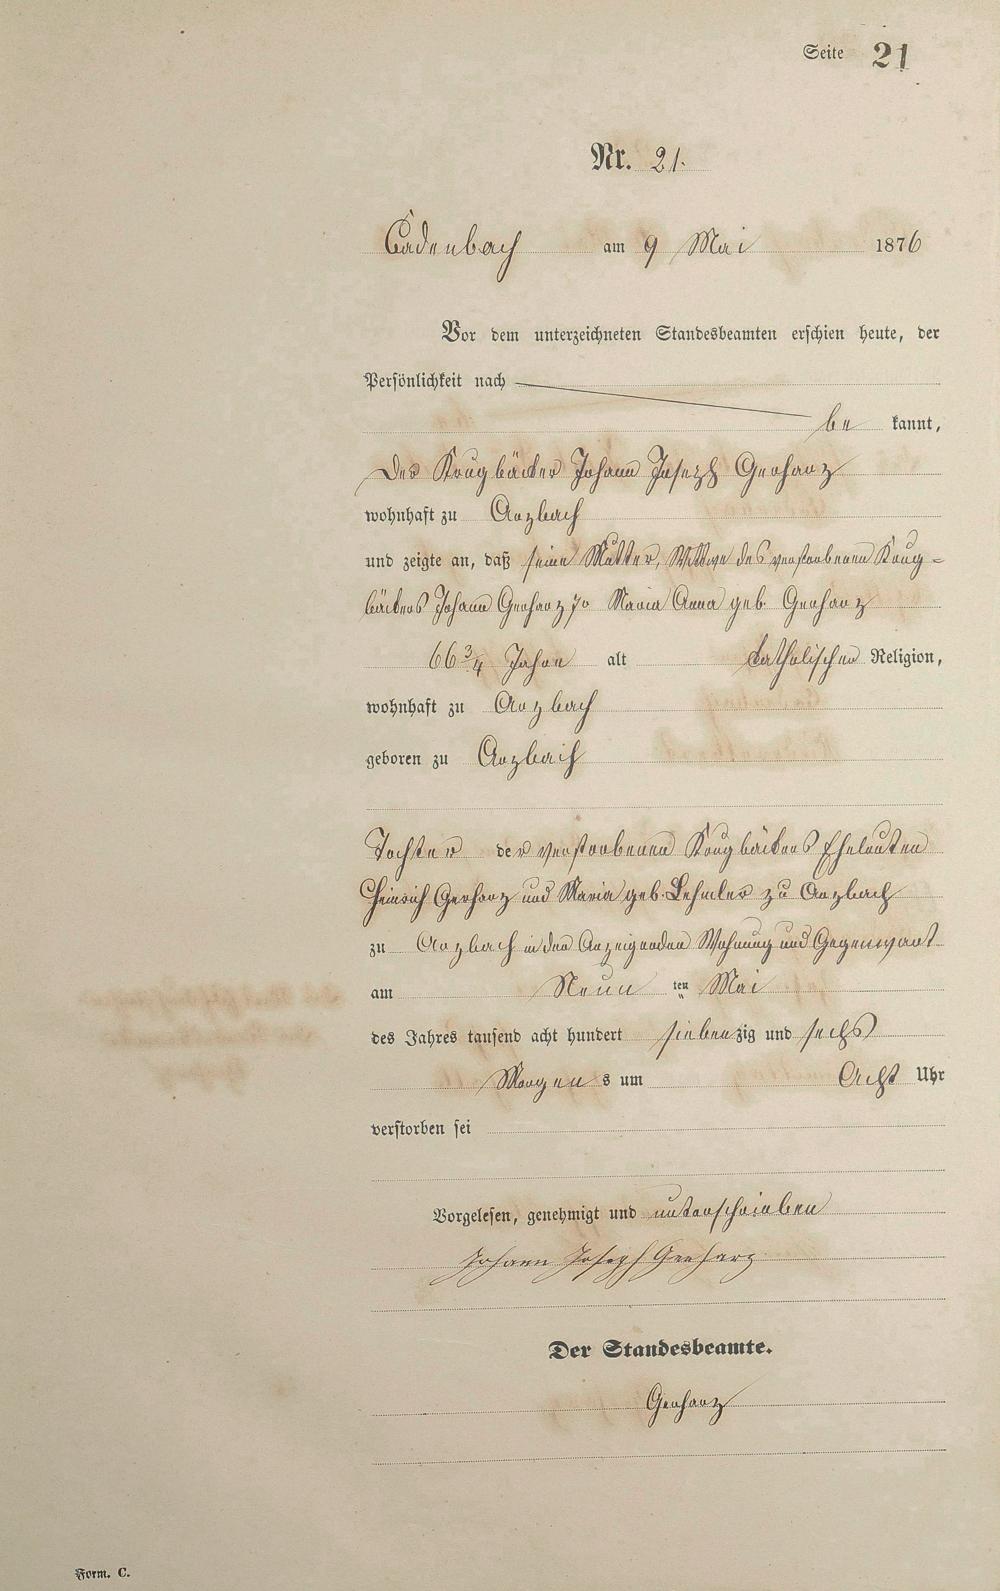 Seite 21
Nr. 21.
Cadenbach am 9 Mai 1876
Vor dem unterzeichneten Standesbeamten erschien heute, der
Persönlichkeit nach
be kannt,
Der Krugbäcker Johann Joseph Gerharz
wohnhaft zu Arzbach
und zeigte an, daß seine Mutter, Wittwe des verstorbenen Krug=
bäckers Johann Gerharz Maria Anna geb. Gerharz
66 3/4 Jahre alt katholischer Religion,
wohnhaft zu Arzbach
geboren zu Arzbach
Tochter der verstorbenen Krugbäckers Eheleuten
Heinrich Gerharz und Maria geb. Lehmler zu Arzbach
zu Arzbach in der Anzeigenden Wohnung und Gegenwart
am Neun ten Mai
des Jahres tausend acht hundert siebenzig und sechs
Morgen s um Acht Uhr
verstorben sei
Vorgelesen, genehmigt und unterschrieben
Johann Joseph Gerharz
Der Standesbeamte.
Gerharz
Form. C.